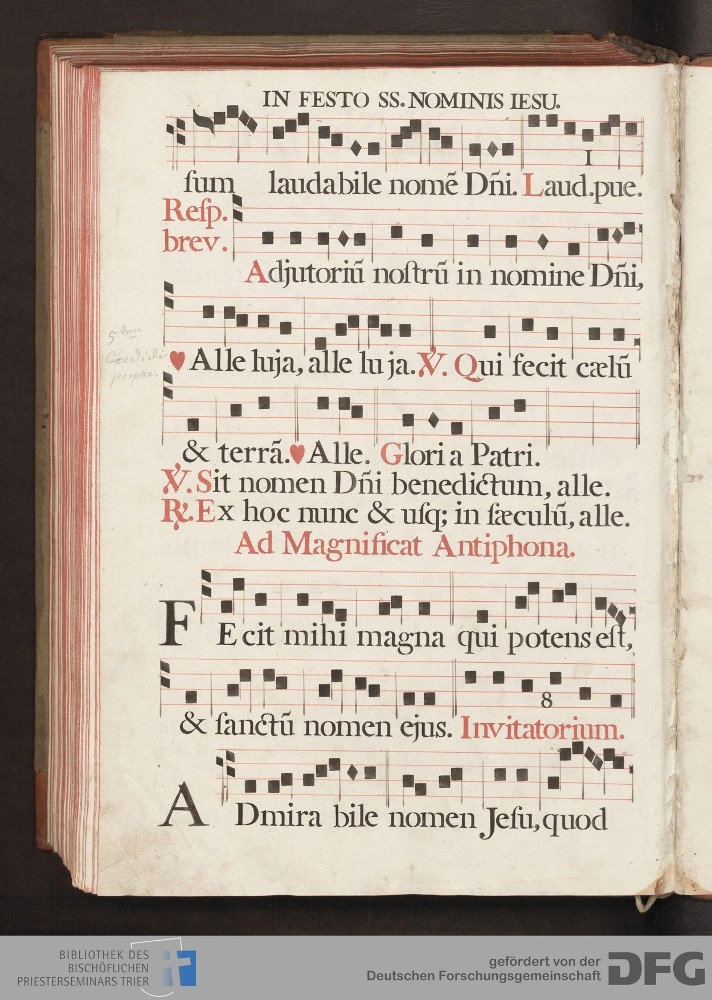 IN FESTO SS. NOMINIS IESU.
1
ſum laudabile nomẽ Dñi. Laud. pue.
Reſp.
brev.
Adjutoriũ noſtrũ in nomine Dñi,
♥ Alle luja, alle lu ja. ℣. Qui fecit cælũ
& terrã. ♥ Alle. Glori a Patri.
℣. Sit nomen Dñi benedictum, alle.
℟. Ex hoc nunc & uſq; in ſæculũ, alle.
Ad Magnificat Antiphona.
FE cit mihi magna qui potens eſt,
8
& ſanctũ nomen ejus. Invitatorium.
ADmira bile nomen Jeſu, quod
BIBLIOTHEK DES
BISCHÖFLICHEN
PRIESTERSEMINARS TRIER
gefördert von der
Deutschen Forschungsgemeinschaft
DFG